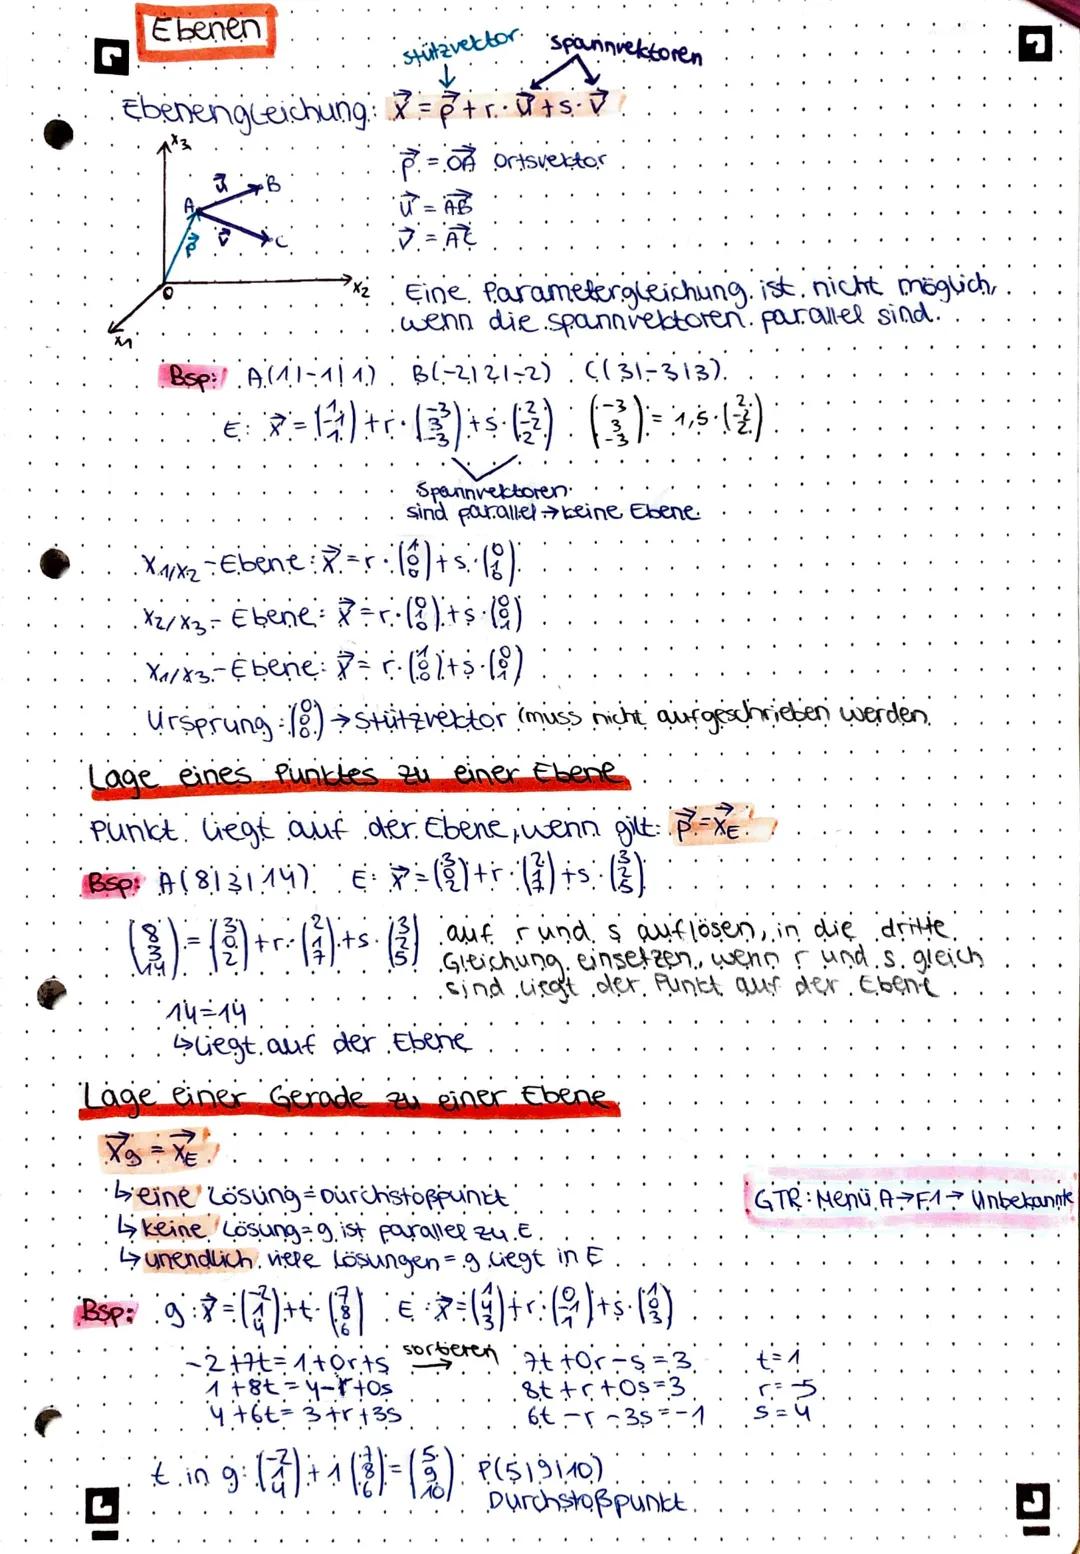 Ebenen
Stützvektor Spannvektoren
Ebenengleichung: x⃗ = p⃗ + r · u⃗ + s · v⃗
x₃
p⃗ = OA⃗ Ortsvektor
u⃗ B
A
u⃗ = AB⃗
p⃗ v⃗ C
v⃗ = AC⃗
0 x₂
x₁
Eine Parametergleichung ist nicht möglich,
wenn die Spannvektoren parallel sind.
Bsp: A(1|-1|1) B(-2|2|-2) C(3|-3|3)
E: x⃗ = (1 -1 1) + r · (-3 3 -3) + s · (2 -2 2) (-3 3 -3) = 1,5 · (2 -2 2)
Spannvektoren
sind parallel → keine Ebene
x₁/x₂-Ebene: x⃗ = r · (1 0 0) + s · (0 1 0)
x₂/x₃-Ebene: x⃗ = r · (0 1 0) + s · (0 0 1)
x₁/x₃-Ebene: x⃗ = r · (1 0 0) + s · (0 0 1)
Ursprung: (0 0 0) → Stützvektor (muss nicht aufgeschrieben werden
Lage eines Punktes zu einer Ebene
Punkt liegt auf der Ebene, wenn gilt: p⃗ = x⃗E
Bsp: A(8|3|14) E: x⃗ = (3 0 2) + r · (2 1 7) + s · (3 2 5)
(8 3 14) = (3 0 2) + r · (2 1 7) + s · (3 2 5) auf r und s auflösen, in die dritte
Gleichung einsetzen, wenn r und s gleich
sind liegt der Punkt auf der Ebene
14=14
↳ liegt auf der Ebene
Lage einer Gerade zu einer Ebene
x⃗g = x⃗E
↳ eine Lösung = Durchstoßpunkt
GTR: Menü A → F1 → Unbekannte
↳ keine Lösung = g ist parallel zu E
↳ unendlich viele Lösungen = g liegt in E
Bsp: g: x⃗ = (-2 1 4) + t · (7 8 6) E: x⃗ = (1 4 3) + r · (0 -1 1) + s · (1 0 3)
-2+7t=1+0r+s sortieren → 7t+0r-s=3 t=1
1+8t=4-r+0s 8t+r+0s=3 r=-5
4+6t=3+r+3s 6t-r-3s=-1 s=4
t in g: (-2 1 4) + 1 (7 8 6) = (5 9 10) P(5|9|10)
Durchstoßpunkt